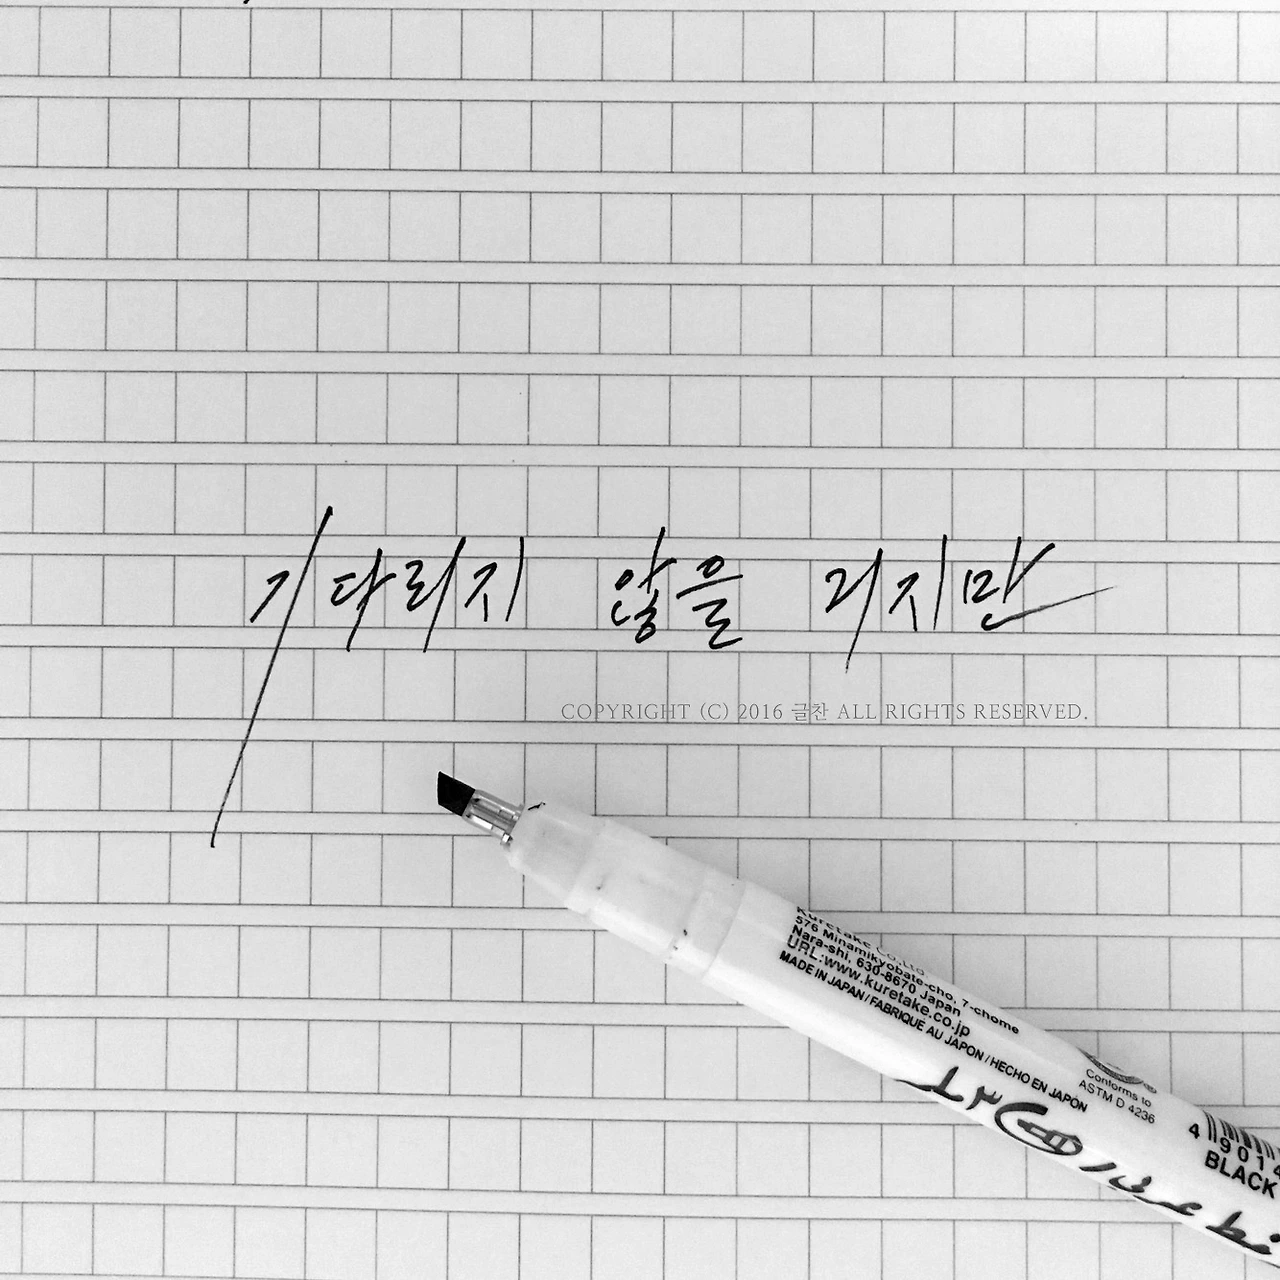 기다리지 않을 거지만
COPYRIGHT (C) 2016 글찬 ALL RIGHTS RESERVED.
Kuretake Co., Ltd.
576 Minamikyobate-cho, 7-chome
Nara-shi, 630-8670 Japan
URL:www.kuretake.co.jp
MADE IN JAPAN / FABRIQUE AU JAPON / HECHO EN JAPON
Conforms to
ASTM D 4236
4 9014
BLACK